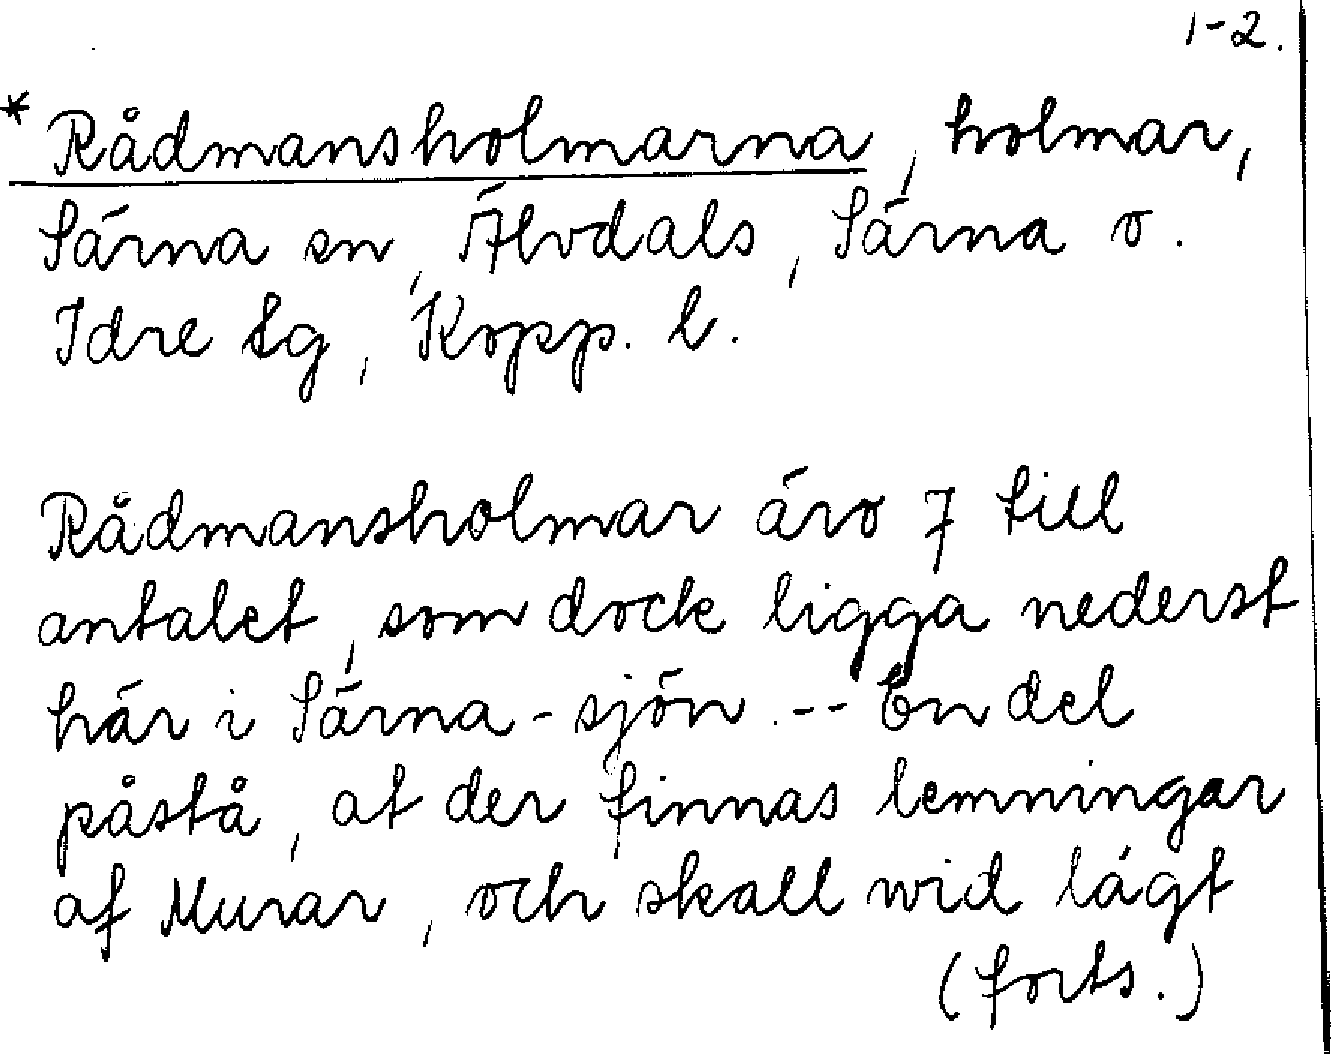 1-2.
* Rådmansholmarna, holmar,
Särna sn, Älvdals, Särna o.
Idre tg, Kopp. l.
Rådmansholmar äro 7 till
antalet, som dock ligga nederst
här i Särna-sjön. -- En del
påstå, at der finnas lemningar
af Murar, och skall wid lågt
(forts.)